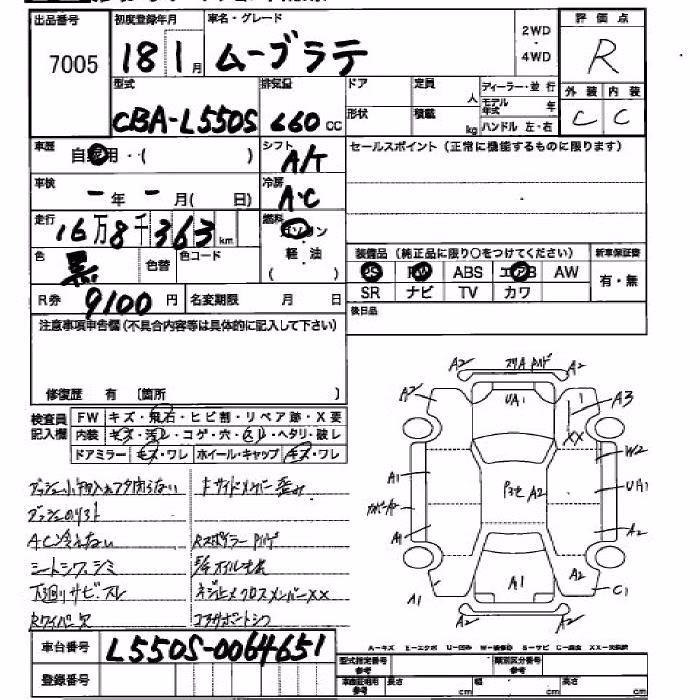 出品番号 7005
初度登録年月 18 1月
車名・グレード ムーブラテ
2WD・4WD
評価点 R
外装 内装
C C
型式 CBA-L550S
排気量 660CC
ドア
形状
定員 人
積載 kg
ディーラー・並行
モデル年式 年
ハンドル 左・右
車歴 自家用・( )
シフト A/T
車検 ー年ー月( 日)
冷房 A・C
走行 16万8千363km
燃料 ガソリン・軽油
( )
色 黒 色替 色コード
R券 9100円 名変期限 月 日
セールスポイント(正常に機能するものに限ります)
装備品(純正品に限り○をつけてください)
新車保証書
有・無
PS PW ABS エアB AW
SR ナビ TV カワ
後日品
注意事項申告欄(不具合内容等は具体的に記入して下さい)
修復歴 有〔箇所 〕
検査員記入欄
FW キズ・飛石・ヒビ割・リペア跡・X要
内装 キズ・汚レ・コゲ・穴・スレ・ヘタリ・破レ
ドアミラー キズ・ワレ ホイール・キャップ キズ・フレ
ダッシュ小物入れフタ閉らない
キサイドメンバー歪み
AC冷えない
Rスポイラー
シートシワ、シミ
オイル
下廻りサビ、スレ
ネジ止メクロスメンバーXX
Rワイパー欠
コアサポートシワ
A2 A2
A2 UA1 1 A3
XX
A1 A2 W2
UA1
A1 A2
A1 A1 A2 C1
A2 A2
車台番号 L550S-0064651
登録番号
A=キズ E=エクボ U=凹み W=補修跡 S=サビ C=腐食 XX=交換済
型式指定番号 参考
類別区分番号 参考
車両証明用 参考
長さ cm 幅 cm 高さ cm